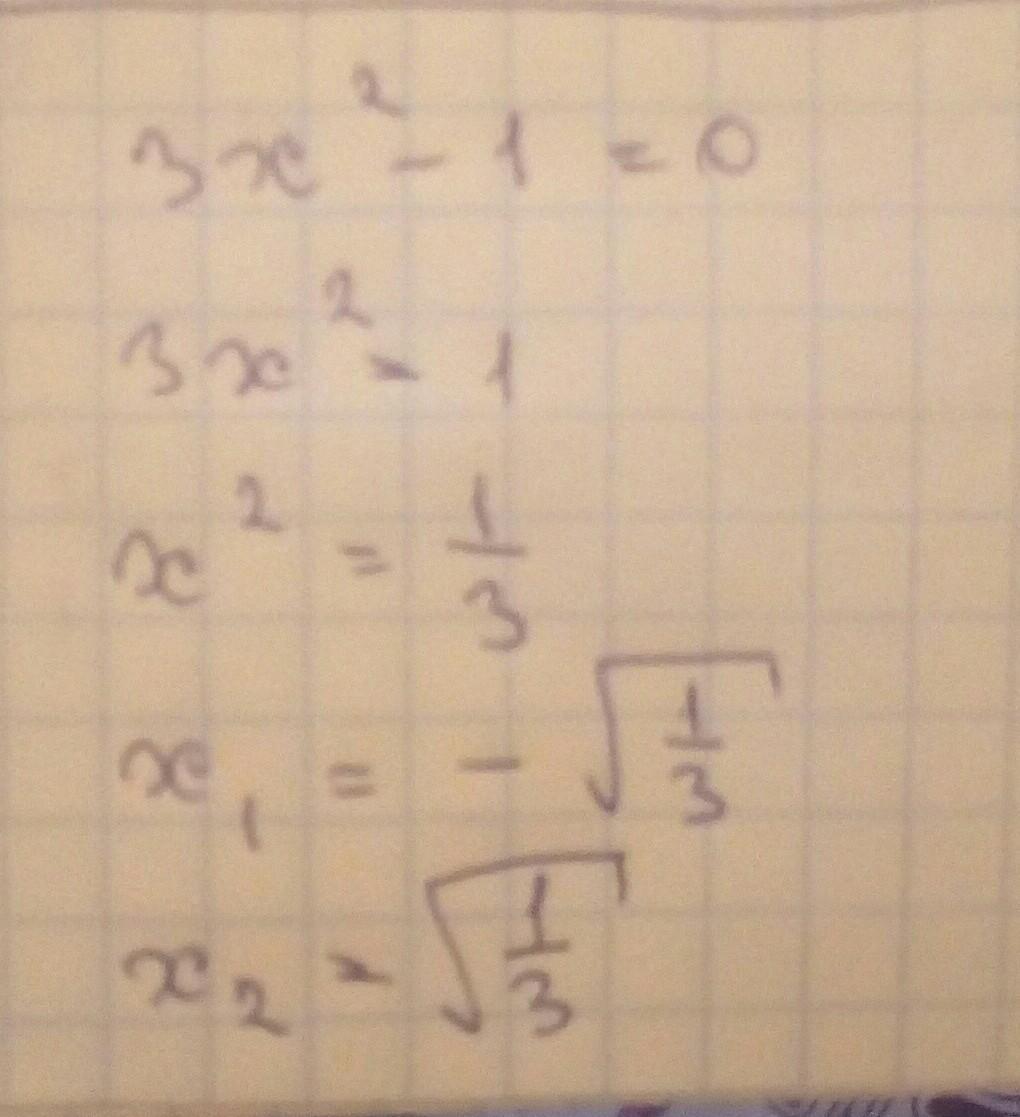 3x² - 1 = 0
3x² = 1
x² = 1/3
x₁ = - √(1/3)
x₂ = √(1/3)